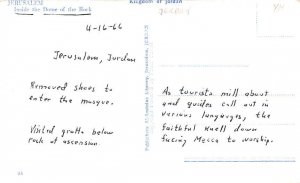 JERUSALEM
Inside the Dome of the Rock
Kingdom of Jordan
4-16-66
Jerusalem, Jordan
Removed shoes to
enter the mosque.
Visited grotto below
rock of ascension.
As tourists mill about
and guides call out in
various languages, the
faithful knell down
facing Mecca to worship.